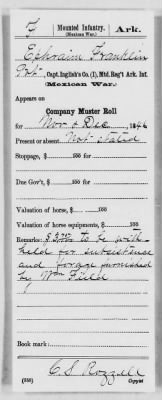 F | Mounted Infantry, | Ark.
(Mexican War.)
Ephraim Franklin
Pvt., Capt. English's Co. (I), Mtd. Reg't Ark. Inf.
(Mexican War.)
Appears on
Company Muster Roll
for Nov & Dec, 1846
Present or absent Not stated
Stoppage, $ 100
Due Gov't, $ 100
Valuation of horse, $ 100
Valuation of horse equipments, $ 100
Remarks: $3.75 to be with-
held for subsistence
and forage furnished
by Wm Field
Book mark:
C S Rozzell
(656) Copyist